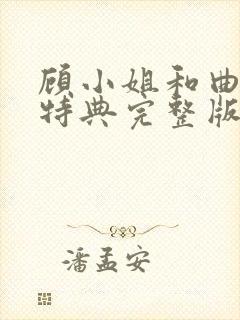 顾小姐和曲
特典完整版
潘孟安